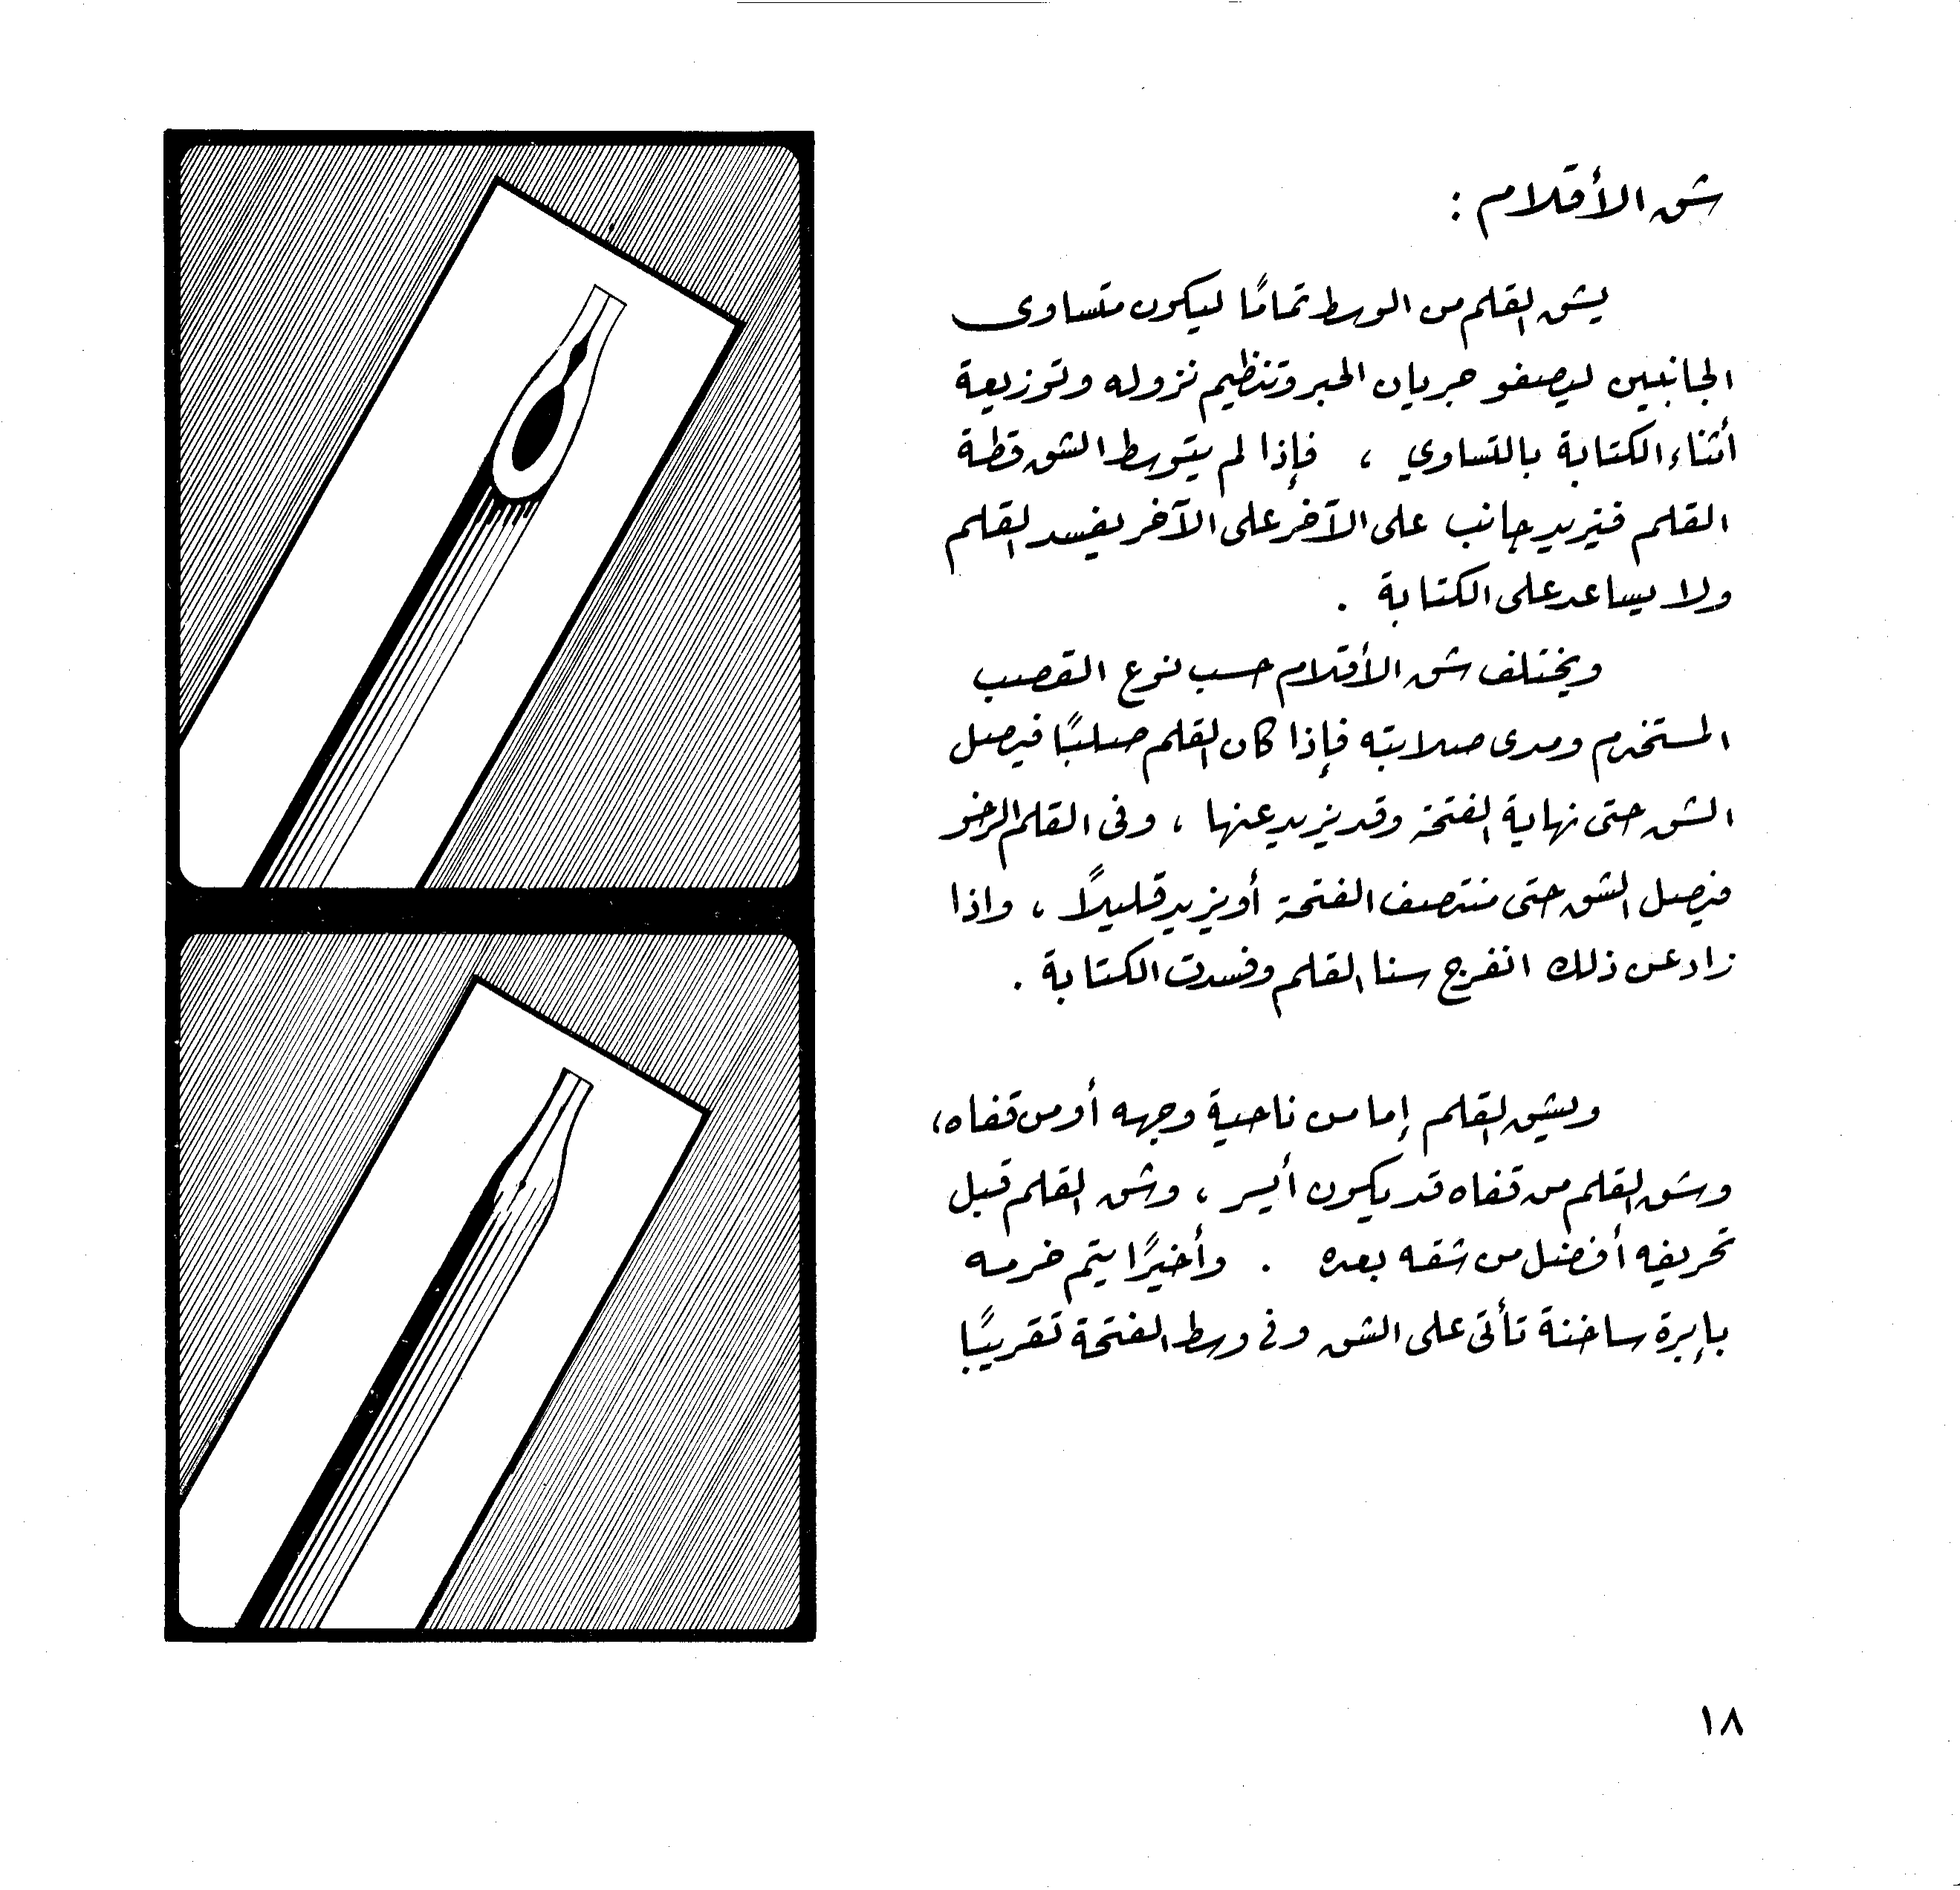 شق الأقلام :
يشق القلم من الوسط تمامًا ليكون متساوى
الجانبين ليصفو جريان الحبر وتنظيم نزوله وتوزيعة
أثناء الكتابة بالتساوي ، فإذا لم يتوسط الشق قطة
القلم فيزيد جانب على الآخر على الآخر يفسد القلم
ولا يساعد على الكتابة .
ويختلف شق الأقلام حسب نوع القصب
المستخدم ومدى صلابته فإذا كان القلم صلبًا فيصل
الشق حتى نهاية الفتحة وقد يزيد عنها ، وفى القلم الرخو
فيصل الشق حتى منتصف الفتحة أو يزيد قليلاً ، واذا
زاد عن ذلك انفرج سنا القلم وفسدت الكتابة .
ويشق القلم إما من ناحية وجهه أو من قفاه ،
وشق القلم من قفاه قد يكون أيسر ، وشق القلم قبل
تحريفه أفضل من شقه بعده . وأخيرًا يتم خرمه
بإبرة ساخنة تأتى على الشق وفى وسط الفتحة تقريبًا
١٨